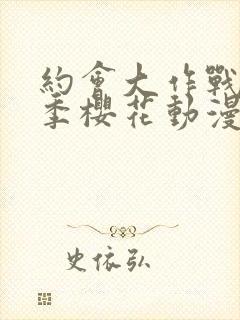 約會大作戰
季櫻花動漫
史依弘